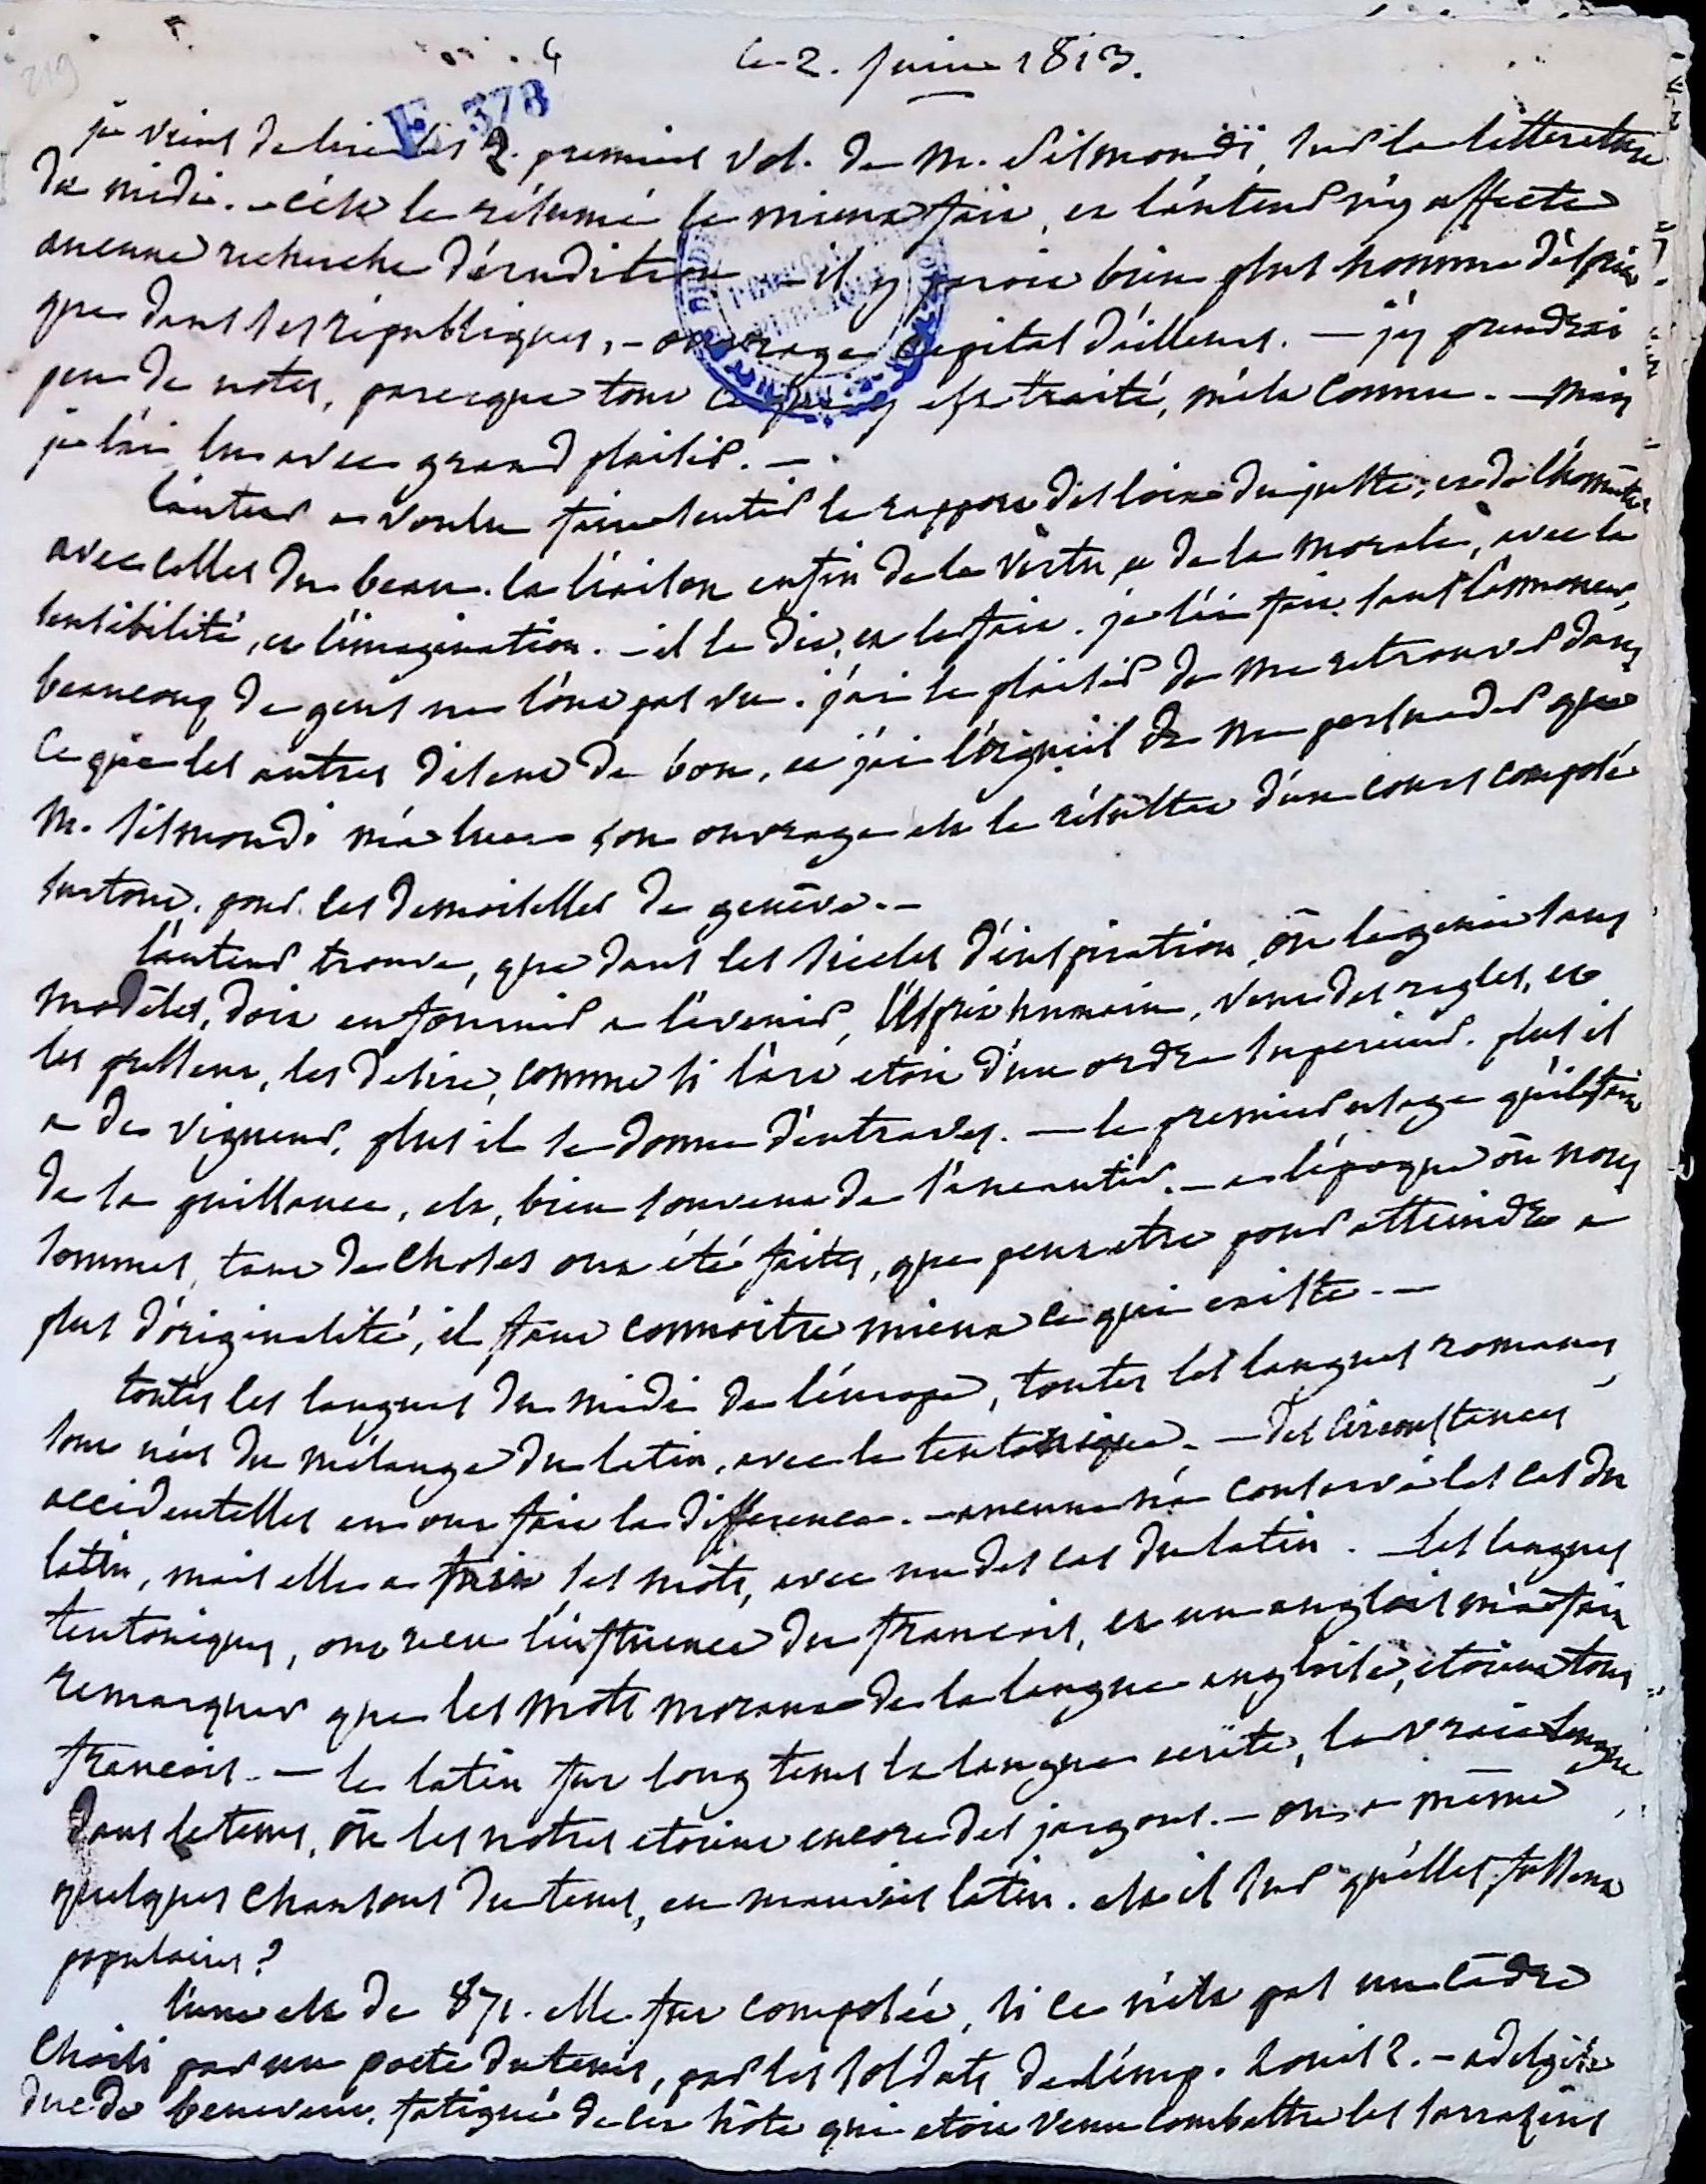 219
4
Le 2. juin 1813.
E 378
je viens de lire les 2. premiers vol. de M. Sismondi, sur la litterature
du midi. - c'est le résumé le mieux fait, et l'auteur n'y affecte
aucune recherche d'érudition - il y paroit bien plus homme d'esprit
que dans ses républiques, - ouvrage capital d'ailleurs. - j'y prendrai
peu de notes, parceque tout ce qui y est traité, m'est connu. - mais
je l'ai lu avec grand plaisir. -
l'auteur a voulu faire sentir le rapport des loix du juste, et de l'honnête,
avec celles du beau. la liaison enfin de la vertu, et de la morale, avec la
sensibilité, et l'imagination. - il le dit, et le fait. je l'ai fait sans l'annoncer,
beaucoup de gens ne l'ont pas vu. j'ai le plaisir de me retrouver dans
ce que les autres disent de bon, et j'ai l'orgueil de me persuader que
M. Sismondi m'a lue - son ouvrage est le résultat d'un cours composé
surtout, pour les demoiselles de genève. -
l'auteur trouve, que dans les siecles d'inspiration, où le genie sans
modèles, doit en fournir a l'avenir, l'esprit humain, veut des regles, et
les pressent, les desire, comme si l'art etoit d'un ordre superieur. plus il
a de vigueur, plus il se donne d'entraves. - le premier usage qu'il fait
de sa puissance, est, bien souvent de l'aneantir. - a l'époque où nous
sommes, tant de choses ont été faites, que peut etre pour atteindre a
plus d'originalité, il faut connoitre mieux ce qui existe. -
toutes les langues du midi de l'europe, toutes les langues romanes,
sont nées du mélange du latin, avec le teutonique. - des circonstances
accidentelles en ont fait la difference. - aucune n'a conservé les cas du
latin, mais elle a fait ses mots, avec un des cas du latin. - les langues
teutoniques, ont reçu l'influence du francois, et un anglois m'a fait
remarquer que les mots moraux de la langue angloise, etoient tous
francois. - le latin fut long tems la langue ecrite, la vraie langue,
dans le tems, où les notres etoient encore des jargons. - on a même
quelques chansons du tems, en mauvais latin. est il sur qu'elles fussent
populaires?
l'une est de 871. elle fut composée, si ce n'est pas un cadre
choisi par un poete du tems, par les soldats de l'emp. Louis 2. - adelgise
duc de benevent, fatigué de cet hôte qui etoit venu combattre les sarrazins